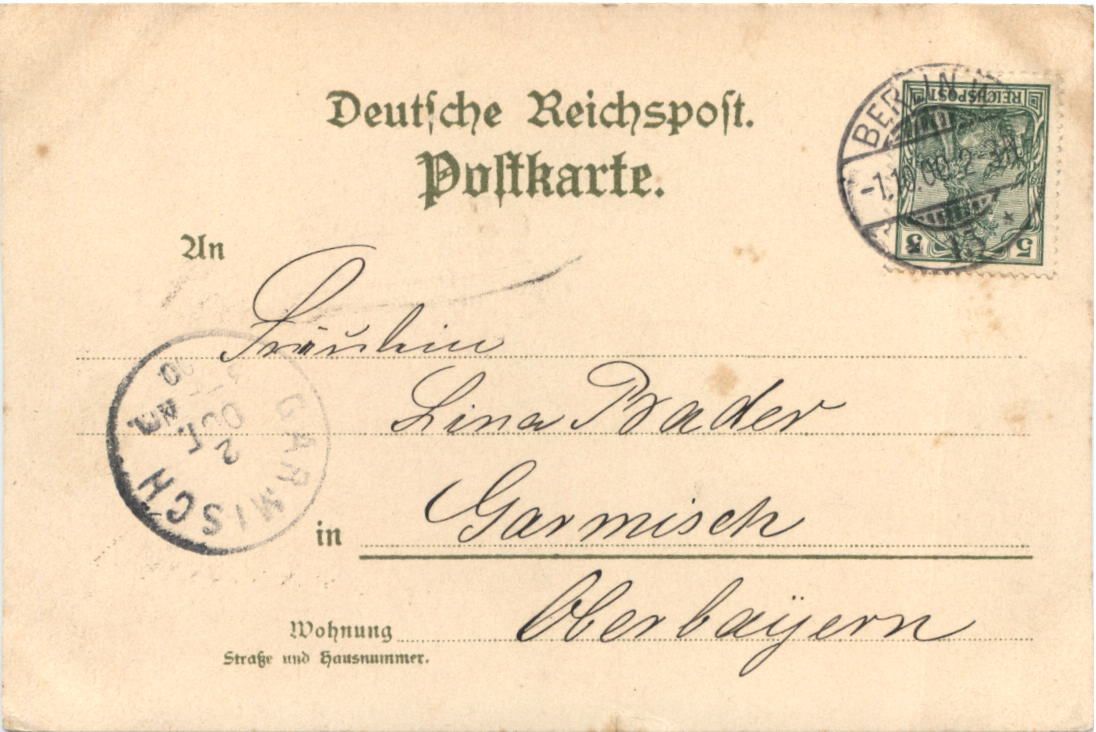 Deutsche Reichspost.
Postkarte.
REICHSPOST
5 5
BERLIN W
-1.10.00.2-3N.
15 *
An
Fräulein
Lina Brader
GARMISCH
2
OCT.
NM.
00
in Garmisch
Oberbayern
Wohnung
Straße und Hausnummer.